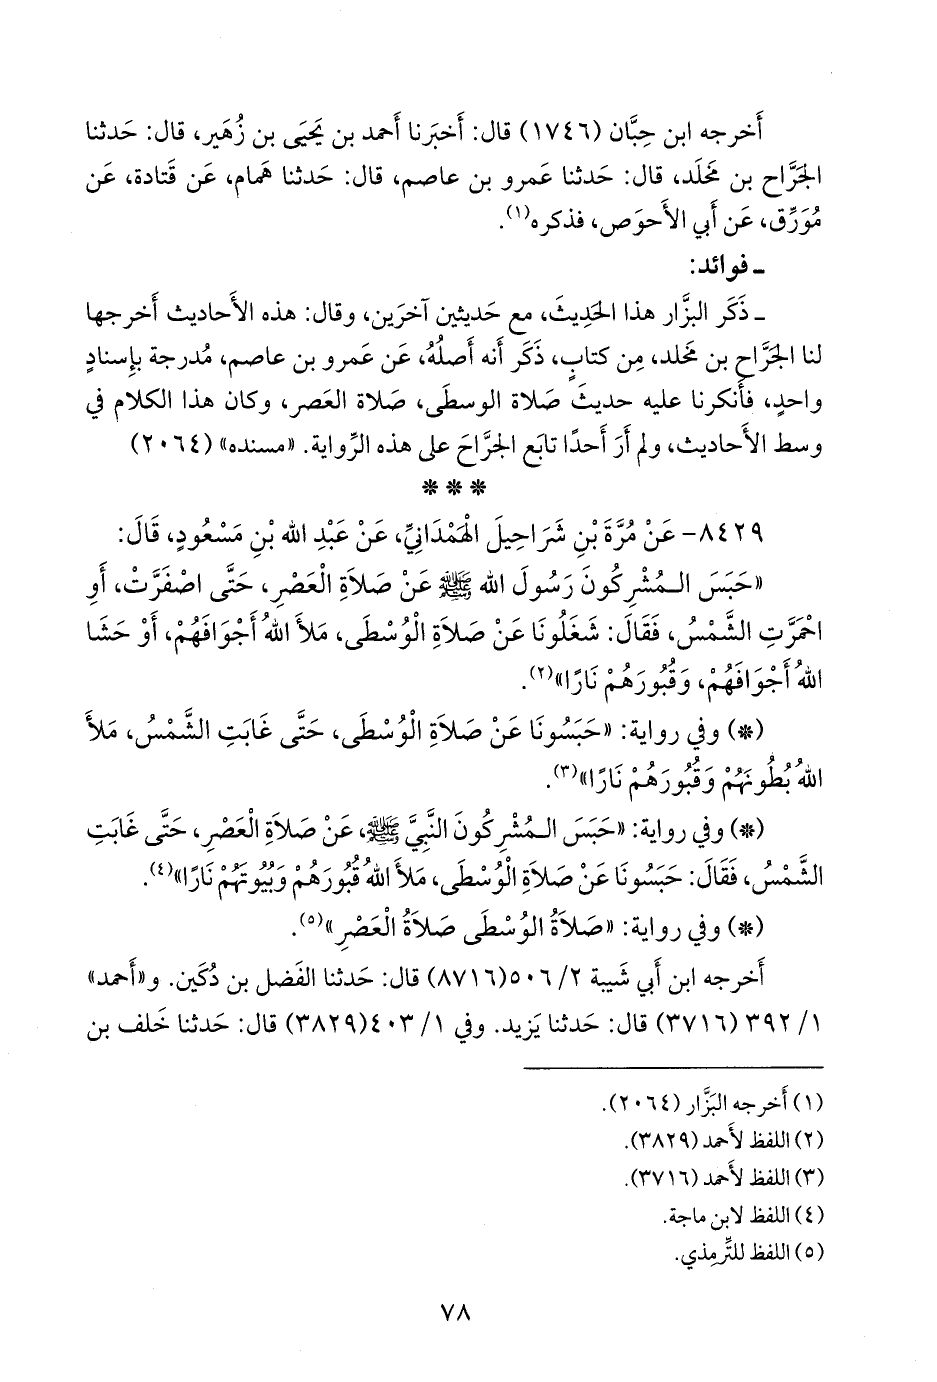 أَخرجه ابن حِبَّان (١٧٤٦) قال: أَخبَرنا أَحمد بن يَحيَى بن زُهَير، قال: حَدثنا
الجَرَّاح بن مَخلَد، قال: حَدثنا عَمرو بن عاصم، قال: حَدثنا هَمام، عَن قَتادة، عَن
مُوَرِّق، عَن أَبي الأَحوَص، فذكره(١).
ـ فوائد:
ـ ذَكَر البزَّار هذا الحَدِيثَ، مع حَديثين آخرَين، وقال: هذه الأَحاديث أَخرجها
لنا الجَرَّاح بن مَخلد، مِن كتابٍ، ذَكَر أَنه أَصلُهُ، عَن عَمرو بن عاصم، مُدرجة بإِسنادٍ
واحدٍ، فأَنكرنا عليه حديثَ صَلاة الوسطَى، صَلاة العَصر، وكان هذا الكلام في
وسط الأَحاديث، ولم أَرَ أَحدًا تابَع الجَرَّاحَ على هذه الرِّواية. «مسنده» (٢٠٦٤)
* * *
٨٤٢٩- عَنْ مُرَّةَ بْنِ شَرَاحِيلَ الْهَمْدَانِيِّ، عَنْ عَبْدِ الله بْنِ مَسْعُودٍ، قَالَ:
«حَبَسَ الْمُشْرِكُونَ رَسُولَ الله ﷺ عَنْ صَلاَةِ الْعَصْرِ، حَتَّى اصْفَرَّتْ، أَوِ
احْمَرَّتِ الشَّمْسُ، فَقَالَ: شَغَلُونَا عَنْ صَلاَةِ الْوُسْطَى، مَلأَ اللهُ أَجْوَافَهُمْ، أَوْ حَشَا
اللهُ أَجْوَافَهُمْ، وَقُبُورَهُمْ نَارًا»(٢).
(*) وفي رواية: «حَبَسُونَا عَنْ صَلاَةِ الْوُسْطَى، حَتَّى غَابَتِ الشَّمْسُ، مَلأَ
اللهُ بُطُونَهُمْ وَقُبُورَهُمْ نَارًا»(٣).
(*) وفي رواية: «حَبَسَ الْمُشْرِكُونَ النَّبِيَّ ﷺ، عَنْ صَلاَةِ الْعَصْرِ، حَتَّى غَابَتِ
الشَّمْسُ، فَقَالَ: حَبَسُونَا عَنْ صَلاَةِ الْوُسْطَى، مَلأَ اللهُ قُبُورَهُمْ وَبُيُوتَهُمْ نَارًا»(٤).
(*) وفي رواية: «صَلاَةُ الوُسْطَى صَلاَةُ الْعَصْرِ»(٥).
أَخرجه ابن أَبي شَيبة ٢/ ٥٠٦(٨٧١٦) قال: حَدثنا الفَضل بن دُكَين. و«أَحمد»
١/ ٣٩٢ (٣٧١٦) قال: حَدثنا يَزيد. وفي ١/ ٤٠٣(٣٨٢٩) قال: حَدثنا خَلف بن
(١) أَخرجه البَزَّار (٢٠٦٤).
(٢) اللفظ لأَحمد (٣٨٢٩).
(٣) اللفظ لأَحمد (٣٧١٦).
(٤) اللفظ لابن ماجة.
(٥) اللفظ للتِّرمِذي.
٧٨